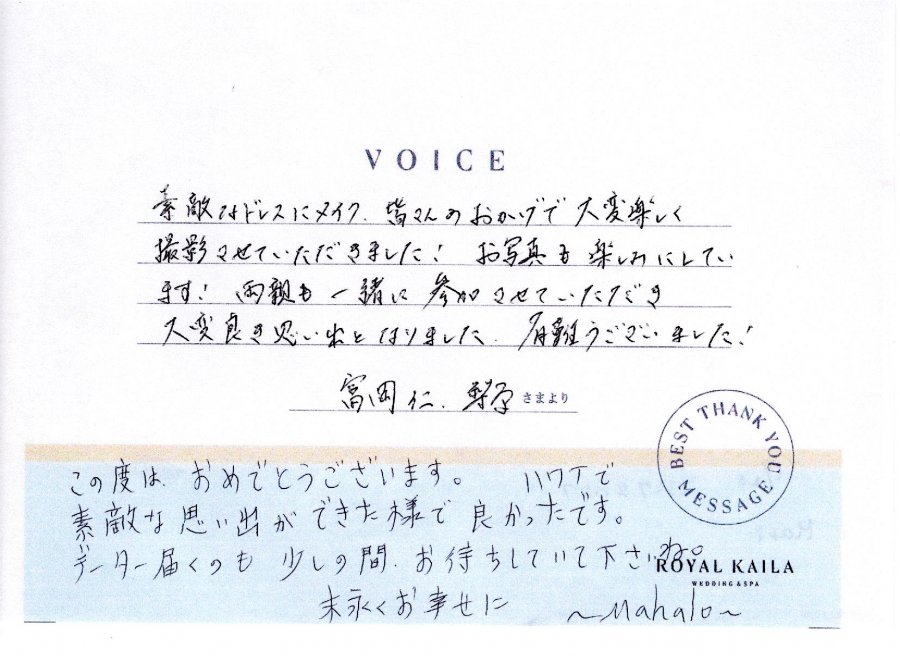 VOICE
素敵なドレスにメイク、皆さんのおかげで大変楽しく
撮影させていただきました！ お写真も楽しみにしてい
ます！ 両親も一緒に参加させていただき
大変良き思い出となりました。有難うございました！
富岡仁、 さまより
BEST THANK YOU MESSAGE
この度は、おめでとうございます。 ハワイで
素敵な思い出ができた様で良かったです。
データー届くのも少しの間、お待ちしていて下さいね。
ROYAL KAILA
WEDDING & SPA
末永くお幸せに ～Mahalo～